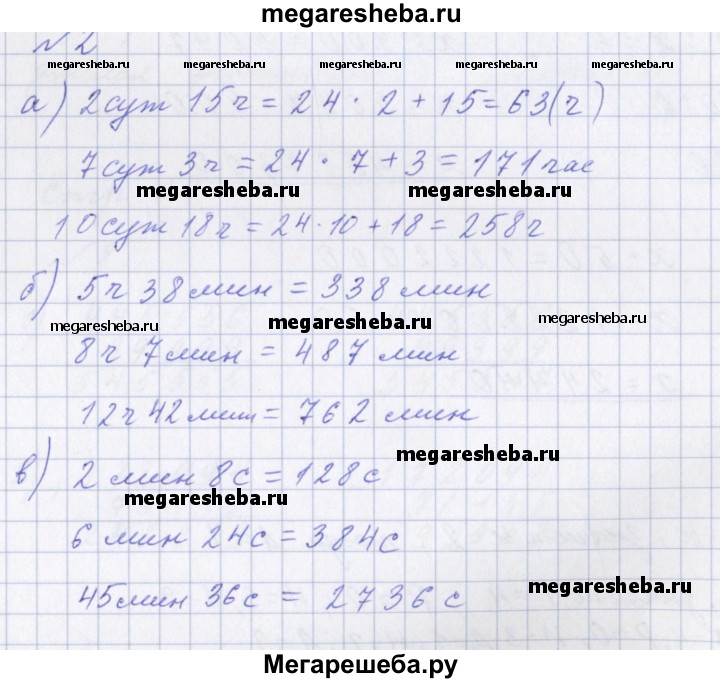 megaresheba.ru
№2
megaresheba.ru megaresheba.ru megaresheba.ru megaresheba.ru megaresheba.ru
а) 2сут 15ч = 24 · 2 + 15 = 63(ч)
7сут 3ч = 24 · 7 + 3 = 171час
megaresheba.ru megaresheba.ru
10сут 18ч = 24·10 + 18 = 258ч
б) 5ч 38мин = 338мин
megaresheba.ru megaresheba.ru megaresheba.ru
8ч 7мин = 487 мин
12ч 42мин = 762 мин
megaresheba.ru
в) 2 мин 8с = 128с
megaresheba.ru
6 мин 24с = 384с
megaresheba.ru
45мин 36с = 2736 с
Мегарешеба.ру